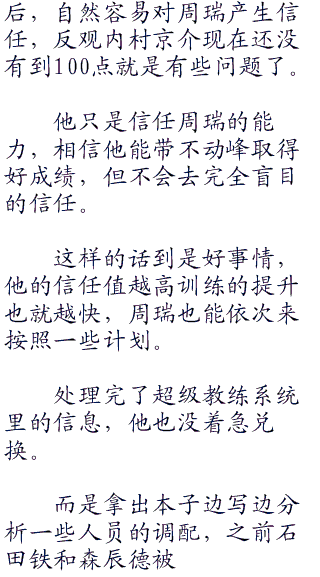 后，自然容易对周瑞产生信
任，反观内村京介现在还没
有到100点就是有些问题了。
他只是信任周瑞的能
力，相信他能带不动峰取得
好成绩，但不会去完全盲目
的信任。
这样的话到是好事情，
他的信任值越高训练的提升
也就越快，周瑞也能依次来
按照一些计划。
处理完了超级教练系统
里的信息，他也没着急兑
换。
而是拿出本子边写边分
析一些人员的调配，之前石
田铁和森辰德被